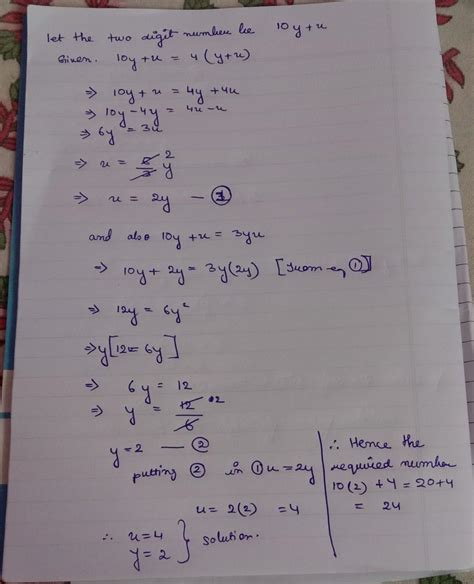 let the two digit number be 10y+x
Given. 10y+x = 4(y+x)
⇒ 10y+x = 4y+4x
⇒ 10y-4y = 4x-x
⇒ 6y = 3x
⇒ x = 6/3 y 2
⇒ x = 2y — ①
and also 10y+x = 3yx
⇒ 10y+2y = 3y(2y) [from eq ①]
⇒ 12y = 6y²
⇒ y[12=6y]
⇒ 6y = 12
⇒ y = 12/6 2
y=2 — ②
putting ② in ① x=2y
x = 2(2) = 4
∴ x=4
y=2 } solution.
∴ Hence the
required number
10(2)+4=20+4
= 24